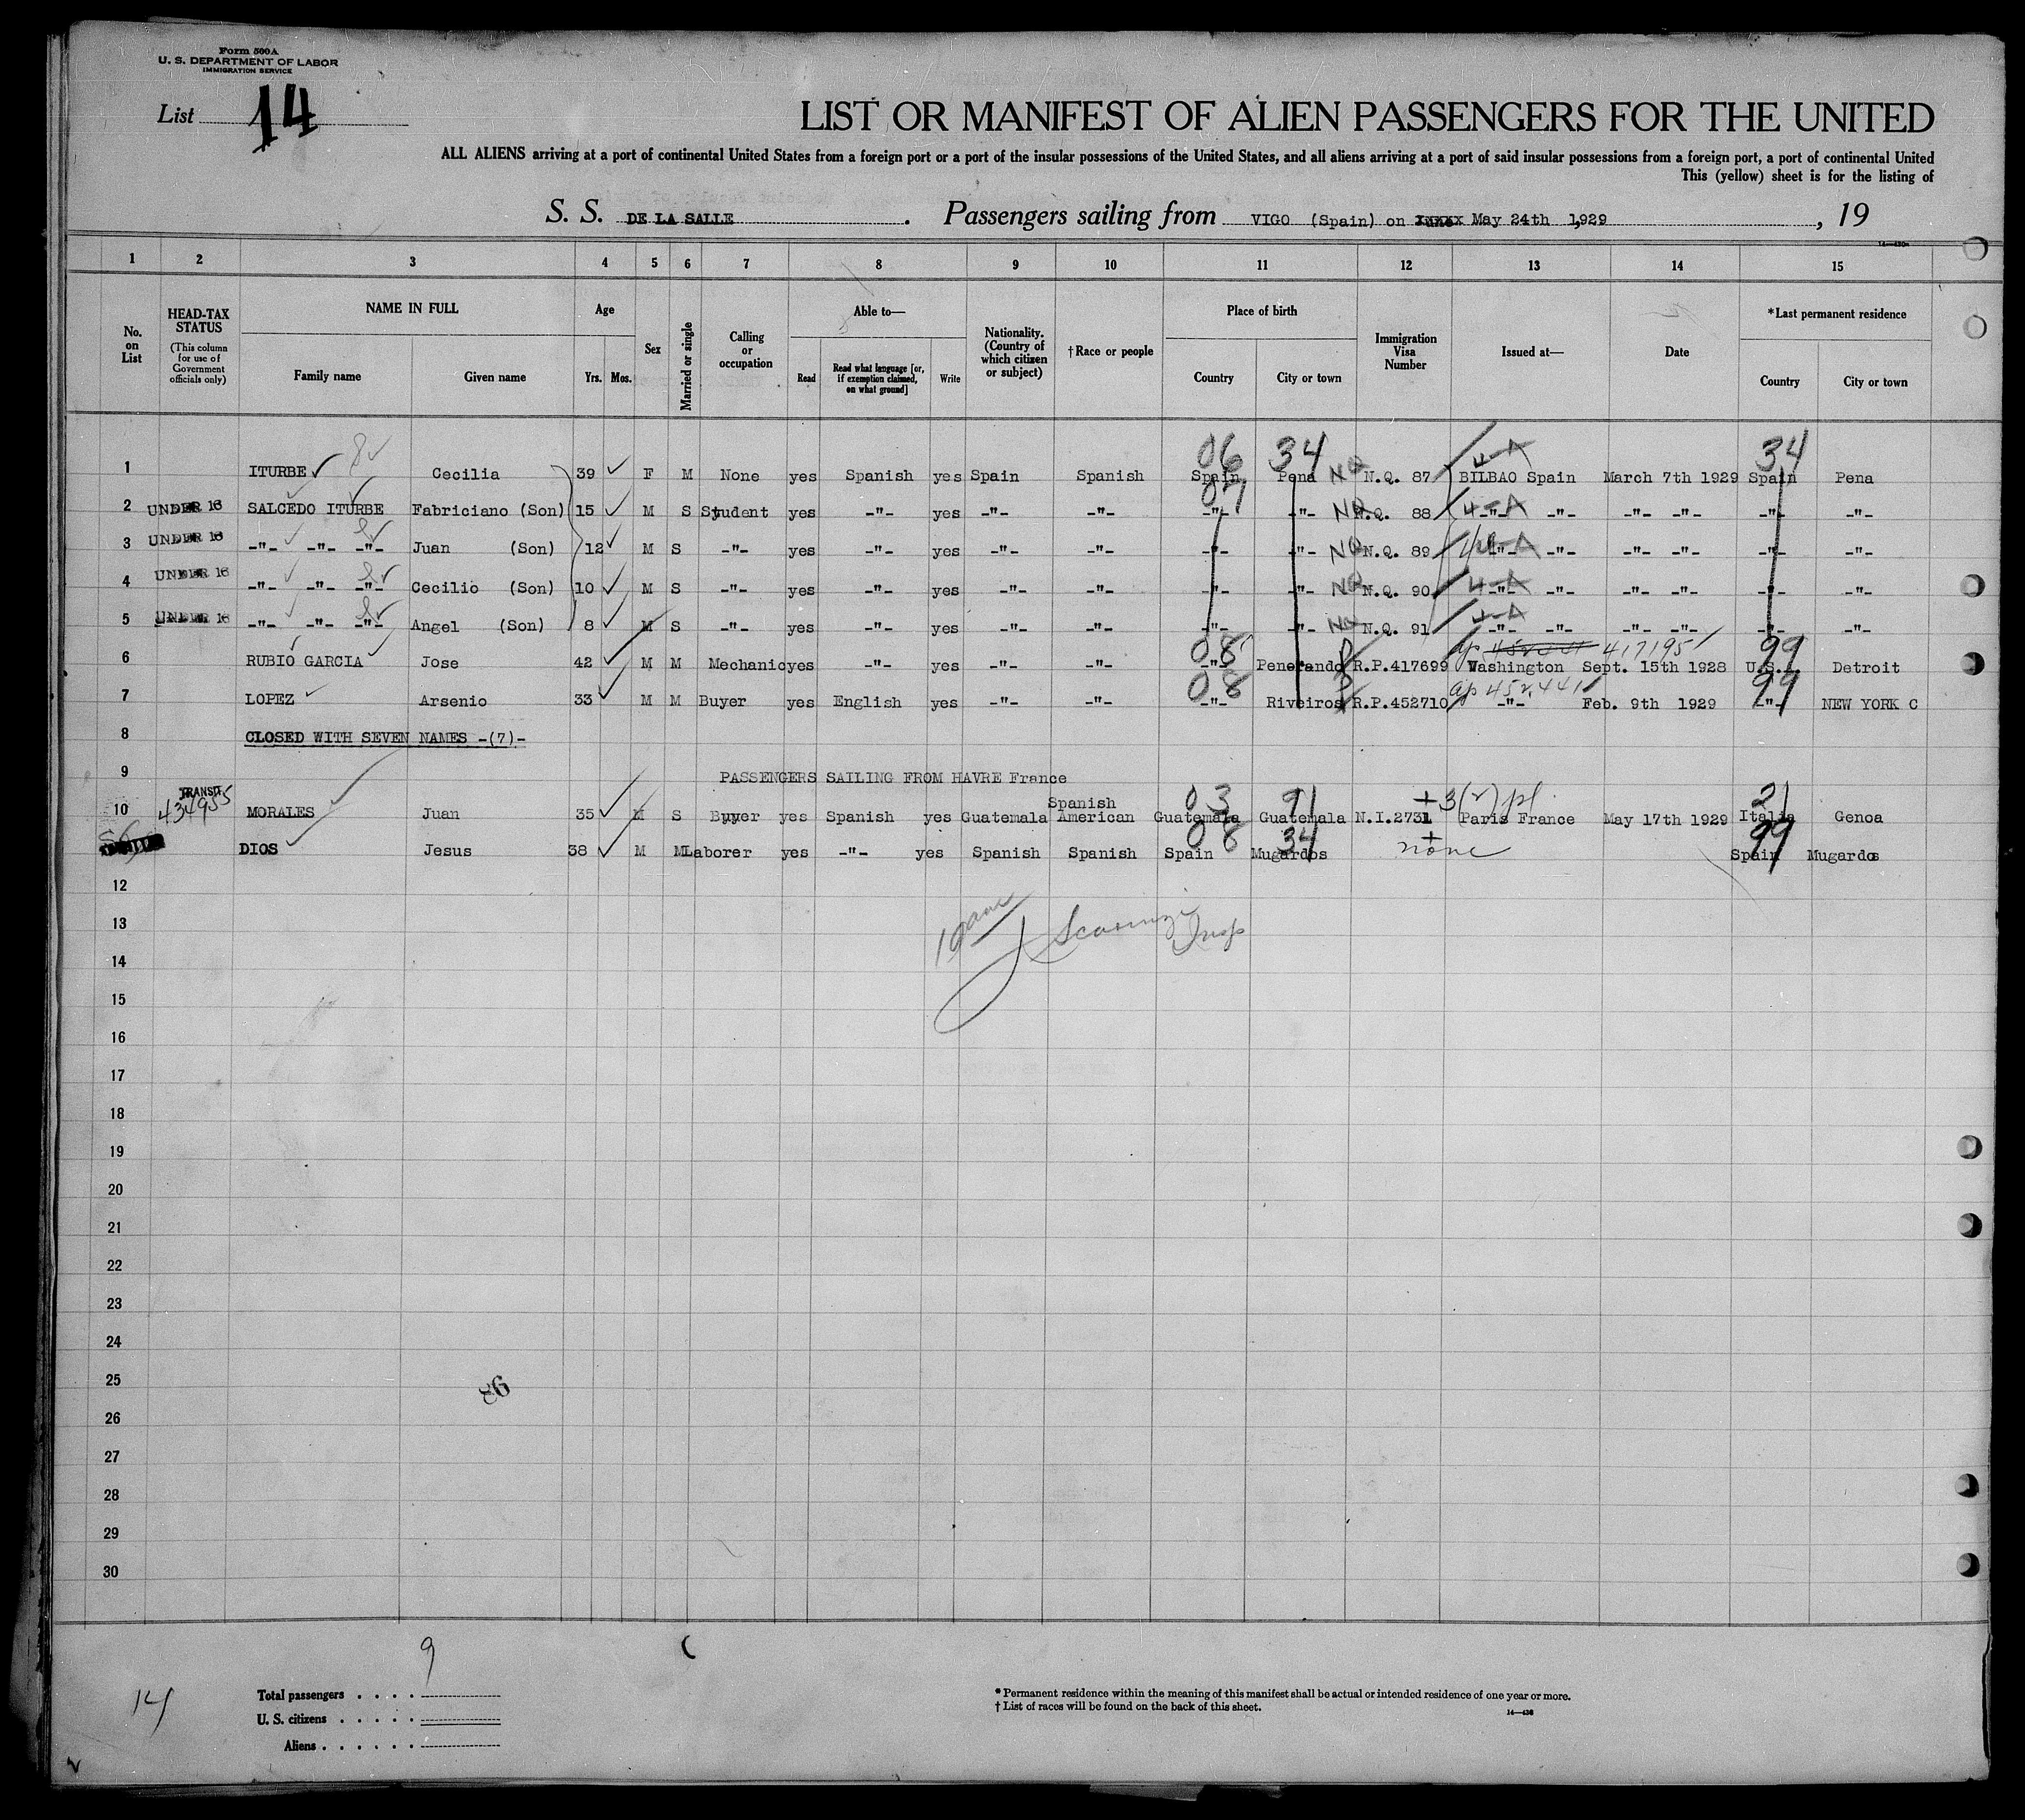 Form 500A
U. S. DEPARTMENT OF LABOR
IMMIGRATION SERVICE
List 14
LIST OR MANIFEST OF ALIEN PASSENGERS FOR THE UNITED
ALL ALIENS arriving at a port of continental United States from a foreign port or a port of the insular possessions of the United States, and all aliens arriving at a port of said insular possessions from a foreign port, a port of continental United
This (yellow) sheet is for the listing of
S. S. DE LA SALLE . Passengers sailing from VIGO (Spain) on May 24th 1,929 , 19
1 2 3 4 5 6 7 8 9 10 11 12 13 14 15
No. on List
HEAD-TAX STATUS (This column for use of Government officials only)
NAME IN FULL
Family name
Given name
Age
Yrs. Mos.
Sex
Married or single
Calling or occupation
Able to—
Read
Read what language [or, if exemption claimed, on what ground]
Write
Nationality. (Country of which citizen or subject)
†Race or people
Place of birth
Country
City or town
Immigration Visa Number
Issued at—
Date
*Last permanent residence
Country
City or town
06 34 4-A 34
1 ITURBE Cecilia 39 F M None yes Spanish yes Spain Spanish Spain Pena NQ N.Q. 87 BILBAO Spain March 7th 1929 Spain Pena
07
2 UNDER 16 SALCEDO ITURBE Fabriciano (Son) 15 M S Student yes -"- yes -"- -"- -"- -"- NQ N.Q. 88 4-A -"- -"- -"- -"- -"- -"-
3 UNDER 16 -"- -"- -"- Juan (Son) 12 M S -"- yes -"- yes -"- -"- -"- -"- NQ N.Q. 89 4-A -"- -"- -"- -"- -"- -"-
4 UNDER 16 -"- -"- -"- Cecilio (Son) 10 M S -"- yes -"- yes -"- -"- -"- -"- NQ N.Q. 90 4-A -"- -"- -"- -"- -"- -"-
5 UNDER 16 -"- -"- -"- Angel (Son) 8 M S -"- yes -"- yes -"- -"- -"- -"- NQ N.Q. 91 4-A -"- -"- -"- -"- -"- -"-
08 417195 99
6 RUBIO GARCIA Jose 42 M M Mechanic yes -"- yes -"- -"- -"- Penerando R.P.417699 Washington Sept. 15th 1928 U.S.A. Detroit
08 452,441 99
7 LOPEZ Arsenio 33 M M Buyer yes English yes -"- -"- -"- Riveiros R.P.452710 -"- Feb. 9th 1929 -"- NEW YORK C
8 CLOSED WITH SEVEN NAMES -(7)-
9 PASSENGERS SAILING FROM HAVRE France
TRANSIT 434955 03 91 +3(2) pl. 21
10 MORALES Juan 35 M S Buyer yes Spanish yes Guatemala Spanish American Guatemala Guatemala N.I.2731 Paris France May 17th 1929 Italia Genoa
08 34 + 99
DIOS Jesus 38 M M Laborer yes -"- yes Spanish Spanish Spain Mugardos none Spain Mugardos
12
13
14
15
16
17
18
19
20
21
22
23
24
25
26
27
28
29
30
86
9
14
Total passengers
U. S. citizens
Aliens
* Permanent residence within the meaning of this manifest shall be actual or intended residence of one year or more.
† List of races will be found on the back of this sheet.
14—430